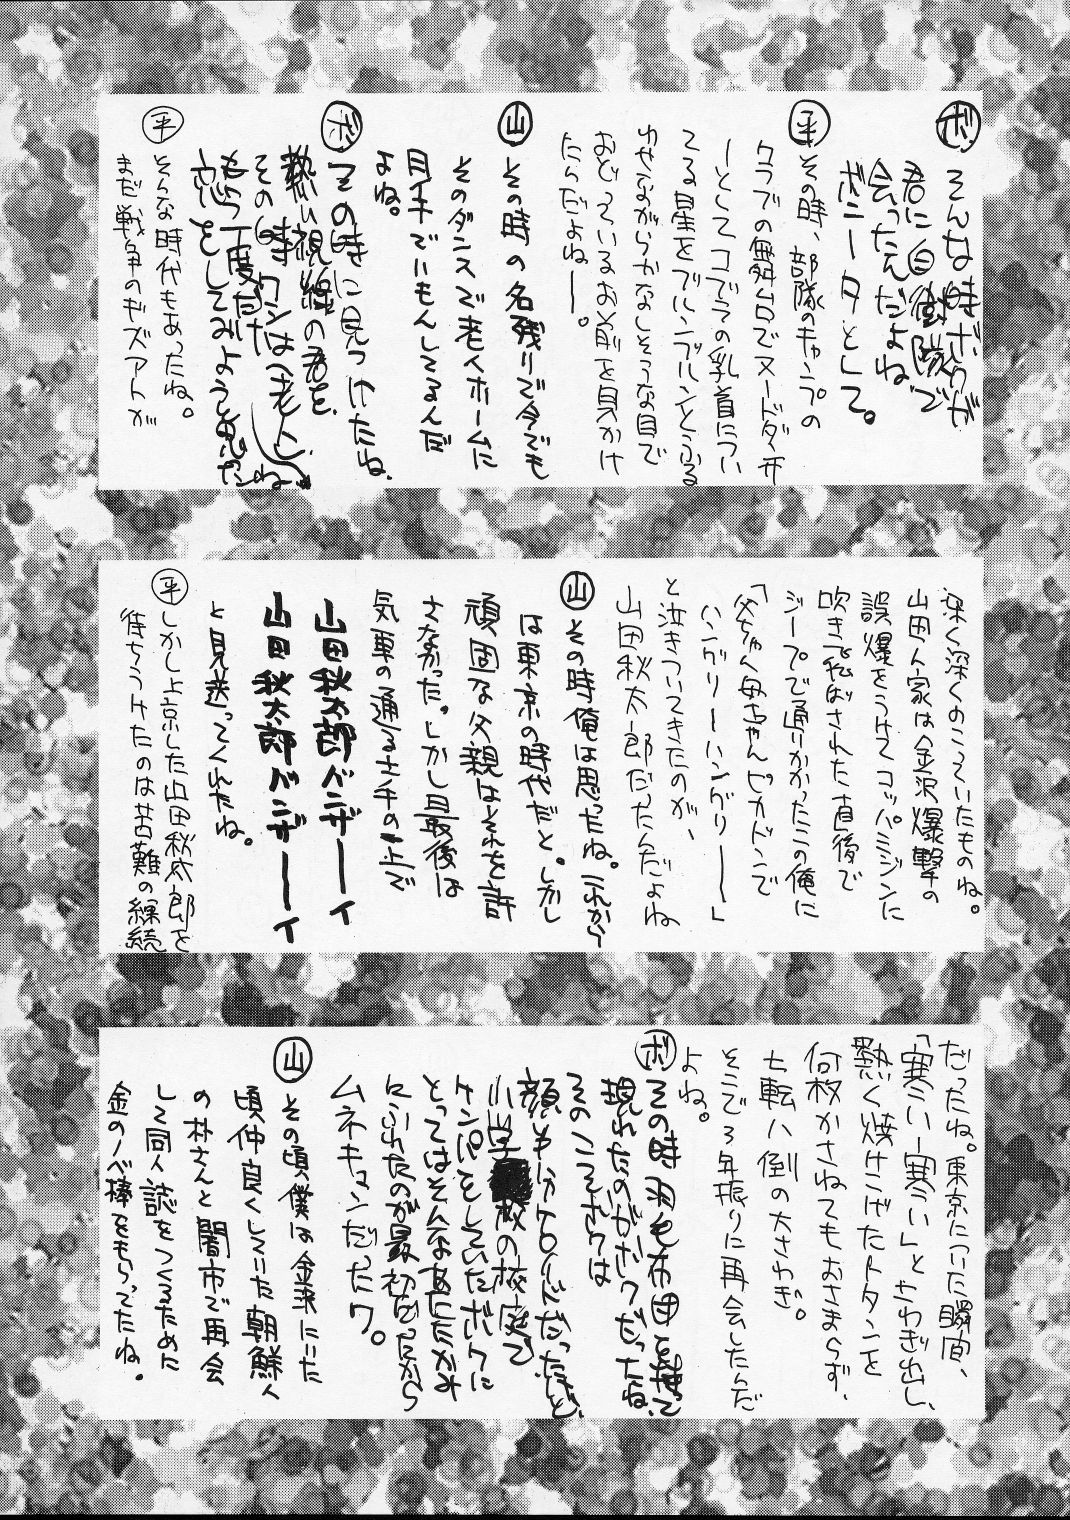 ボ そんな時ボクが
君に自衛隊で
会ったんだよね
ボニータとして。
平 その時、部隊のキャンプの
クラブの舞台でヌードダンサ
ーとしてコブラの乳首につい
てる星をブルンブルンとふる
わせながらかなしそうな目で
おどっているお前を見かけ
たんだよねー。
山 その時の名残りで今でも
そのダンスで老人ホームに
目手でいもんしてるんだ
よね。
ボ その時に見つけたね、
熱い視線の君を、
その時ワシは老
もう丁度だ
恋をしてみようと思った
平 そんな時代もあったね。
まだ戦争のキズアトが
深く深くのこっていたものね。
山田ん家は金沢爆撃の
誤爆をうけてコッパミジンに
吹きて飛ばされた直後で
ジープで通りかかったこの俺に
「父ちゃん母ちゃんピカドンで
ハングリーハングリー」
と泣きついてきたのが、
山田秋太郎だったんだよね
山 その時俺は思ったね。これから
は東京の時代だと。しかし
頑固な父親はそれを許
さなかった。しかし最後は
気車の通る土手の上で
山田秋太郎バンザーイ
山田秋太郎バンザーイ
と見送ってくれたね。
平 しかし上京した山田秋太郎を
待ちうけたのは苦難の継続
だったね。東京についた瞬間、
「寒いー寒い」とさわぎ出し、
熱く焼けこげたトタンを
何枚かさねてもおさまらず、
七転八倒の大さわぎ。
そこで3年振りに再会したんだ
よね。
ボ その時羽毛布団を持って
現れたのがボクだったね、
そのころボクは
顔もハンドルもハードだったけど、
小学校の校庭で
ケンパをしていたボクに
とってはそんなあたたかみ
にふれたのが最初だったから
ムネキュンだったワ。
山 その頃、僕は金沢にいた
頃仲良くしていた朝鮮人
の朴さんと闇市で再会
して同人誌をつくるために
金のノベ棒をもらってたね。